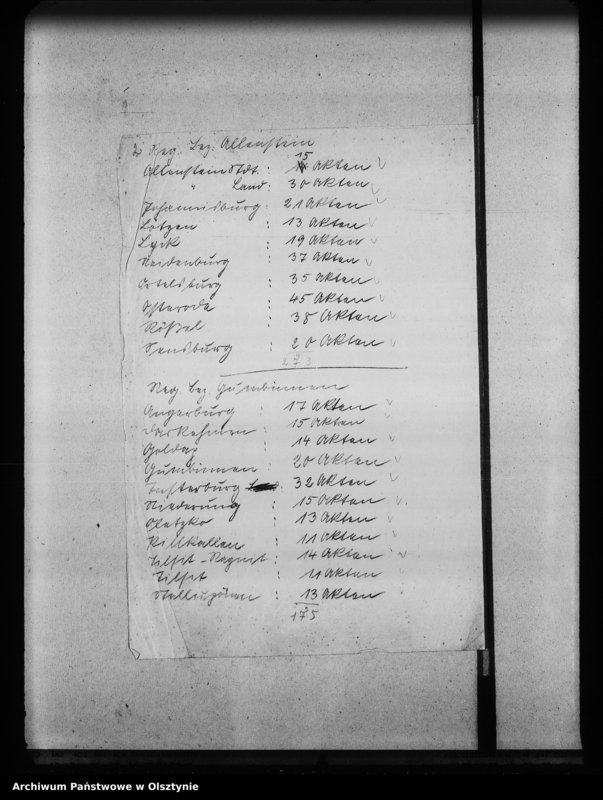 Reg. Bez. Allenstein
Allenstein Stdt. : 15 Akten
" Land: 30 Akten
Johannisburg : 21 Akten
Lötzen : 13 Akten
Lyck : 19 Akten
Neidenburg : 37 Akten
Ortelsburg : 35 Akten
Osterode : 45 Akten
Rößel : 38 Akten
Sensburg : 20 Akten
273
Reg. Bez. Gumbinnen
Angerburg : 17 Akten
Darkehmen : 15 Akten
Goldap : 14 Akten
Gumbinnen : 20 Akten
Insterburg : 32 Akten
Niederung : 15 Akten
Oletzko : 13 Akten
Pillkallen : 11 Akten
Tilsit-Ragnit : 14 Akten
Tilsit : 11 Akten
Stallupönen : 13 Akten
175
Archiwum Państwowe w Olsztynie